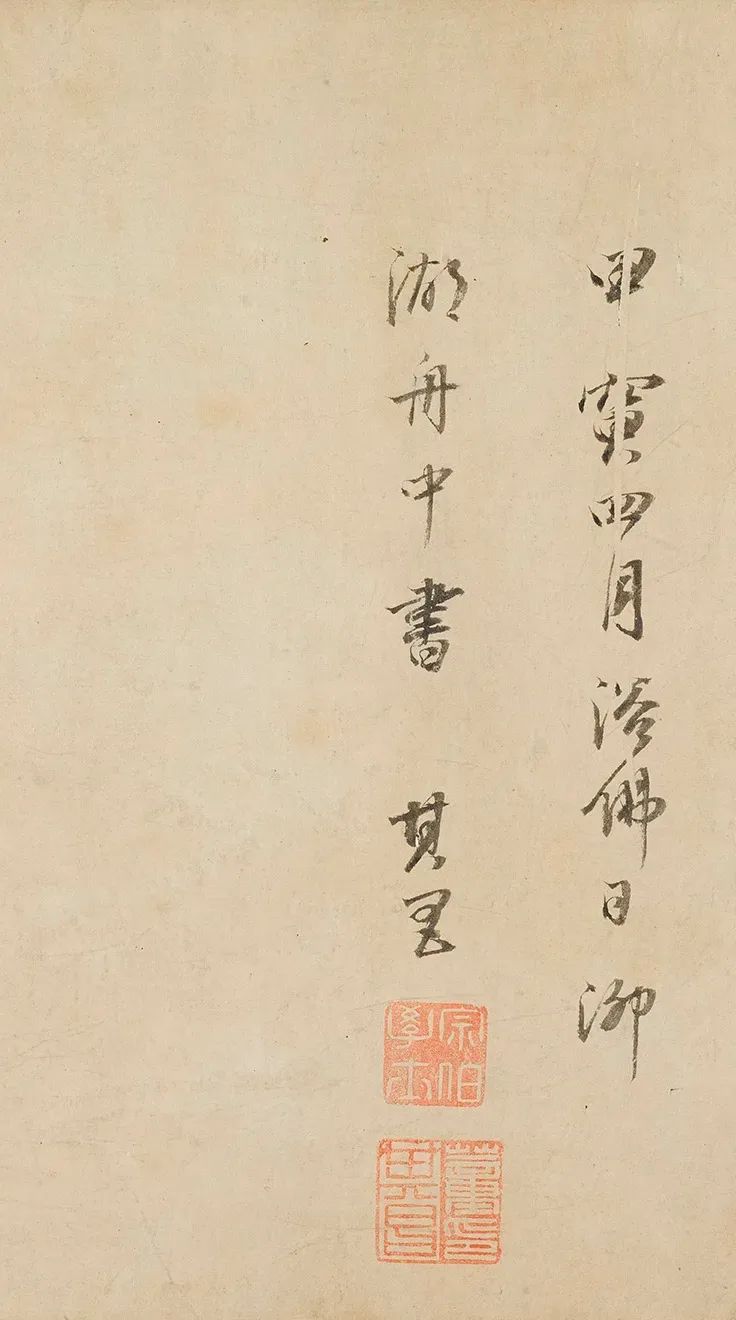 甲寅四月浴佛日泖
湖舟中書 其昌
宗伯學士
董其昌印